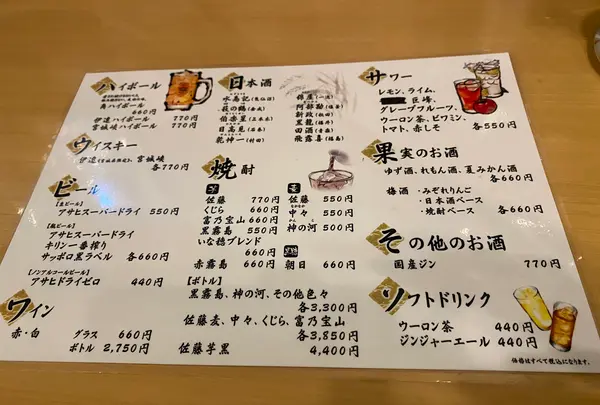 ハイボール
角ハイボール
660円
伊達ハイボール 770円
宮城峡ハイボール 770円
ウイスキー
伊達 宮城峡
各770円
ビール
アサヒスーパードライ 550円
アサヒスーパードライ
キリン一番搾り
サッポロ黒ラベル 各660円
【ノンアルコールビール】
アサヒドライゼロ 440円
ワイン
赤・白 グラス 660円
ボトル 2,750円
日本酒
萩の鶴
伯楽星
日高見
乾神一
阿部勘
新政
黒龍
田酒
飛露喜
焼酎
芋
佐藤 770円
くじら 660円
富乃宝山 660円
黒霧島 550円
いな穂ブレンド
660円
赤霧島 660円
麦
佐藤 550円
中々 550円
神の河 500円
朝日 660円
【ボトル】
黒霧島、神の河、その他色々
各3,300円
佐藤麦、中々、くじら、富乃宝山
各3,850円
佐藤芋黒 4,400円
サワー
レモン、ライム、
巨峰、
グレープフルーツ、
ウーロン茶、ビワミン、
トマト、赤しそ 各550円
果実のお酒
ゆず酒、れもん酒、夏みかん酒
各660円
梅酒・みぞれりんご
・日本酒ベース
・焼酎ベース 各660円
その他のお酒
国産ジン 770円
ソフトドリンク
ウーロン茶 440円
ジンジャーエール 440円
価格はすべて税込になります。